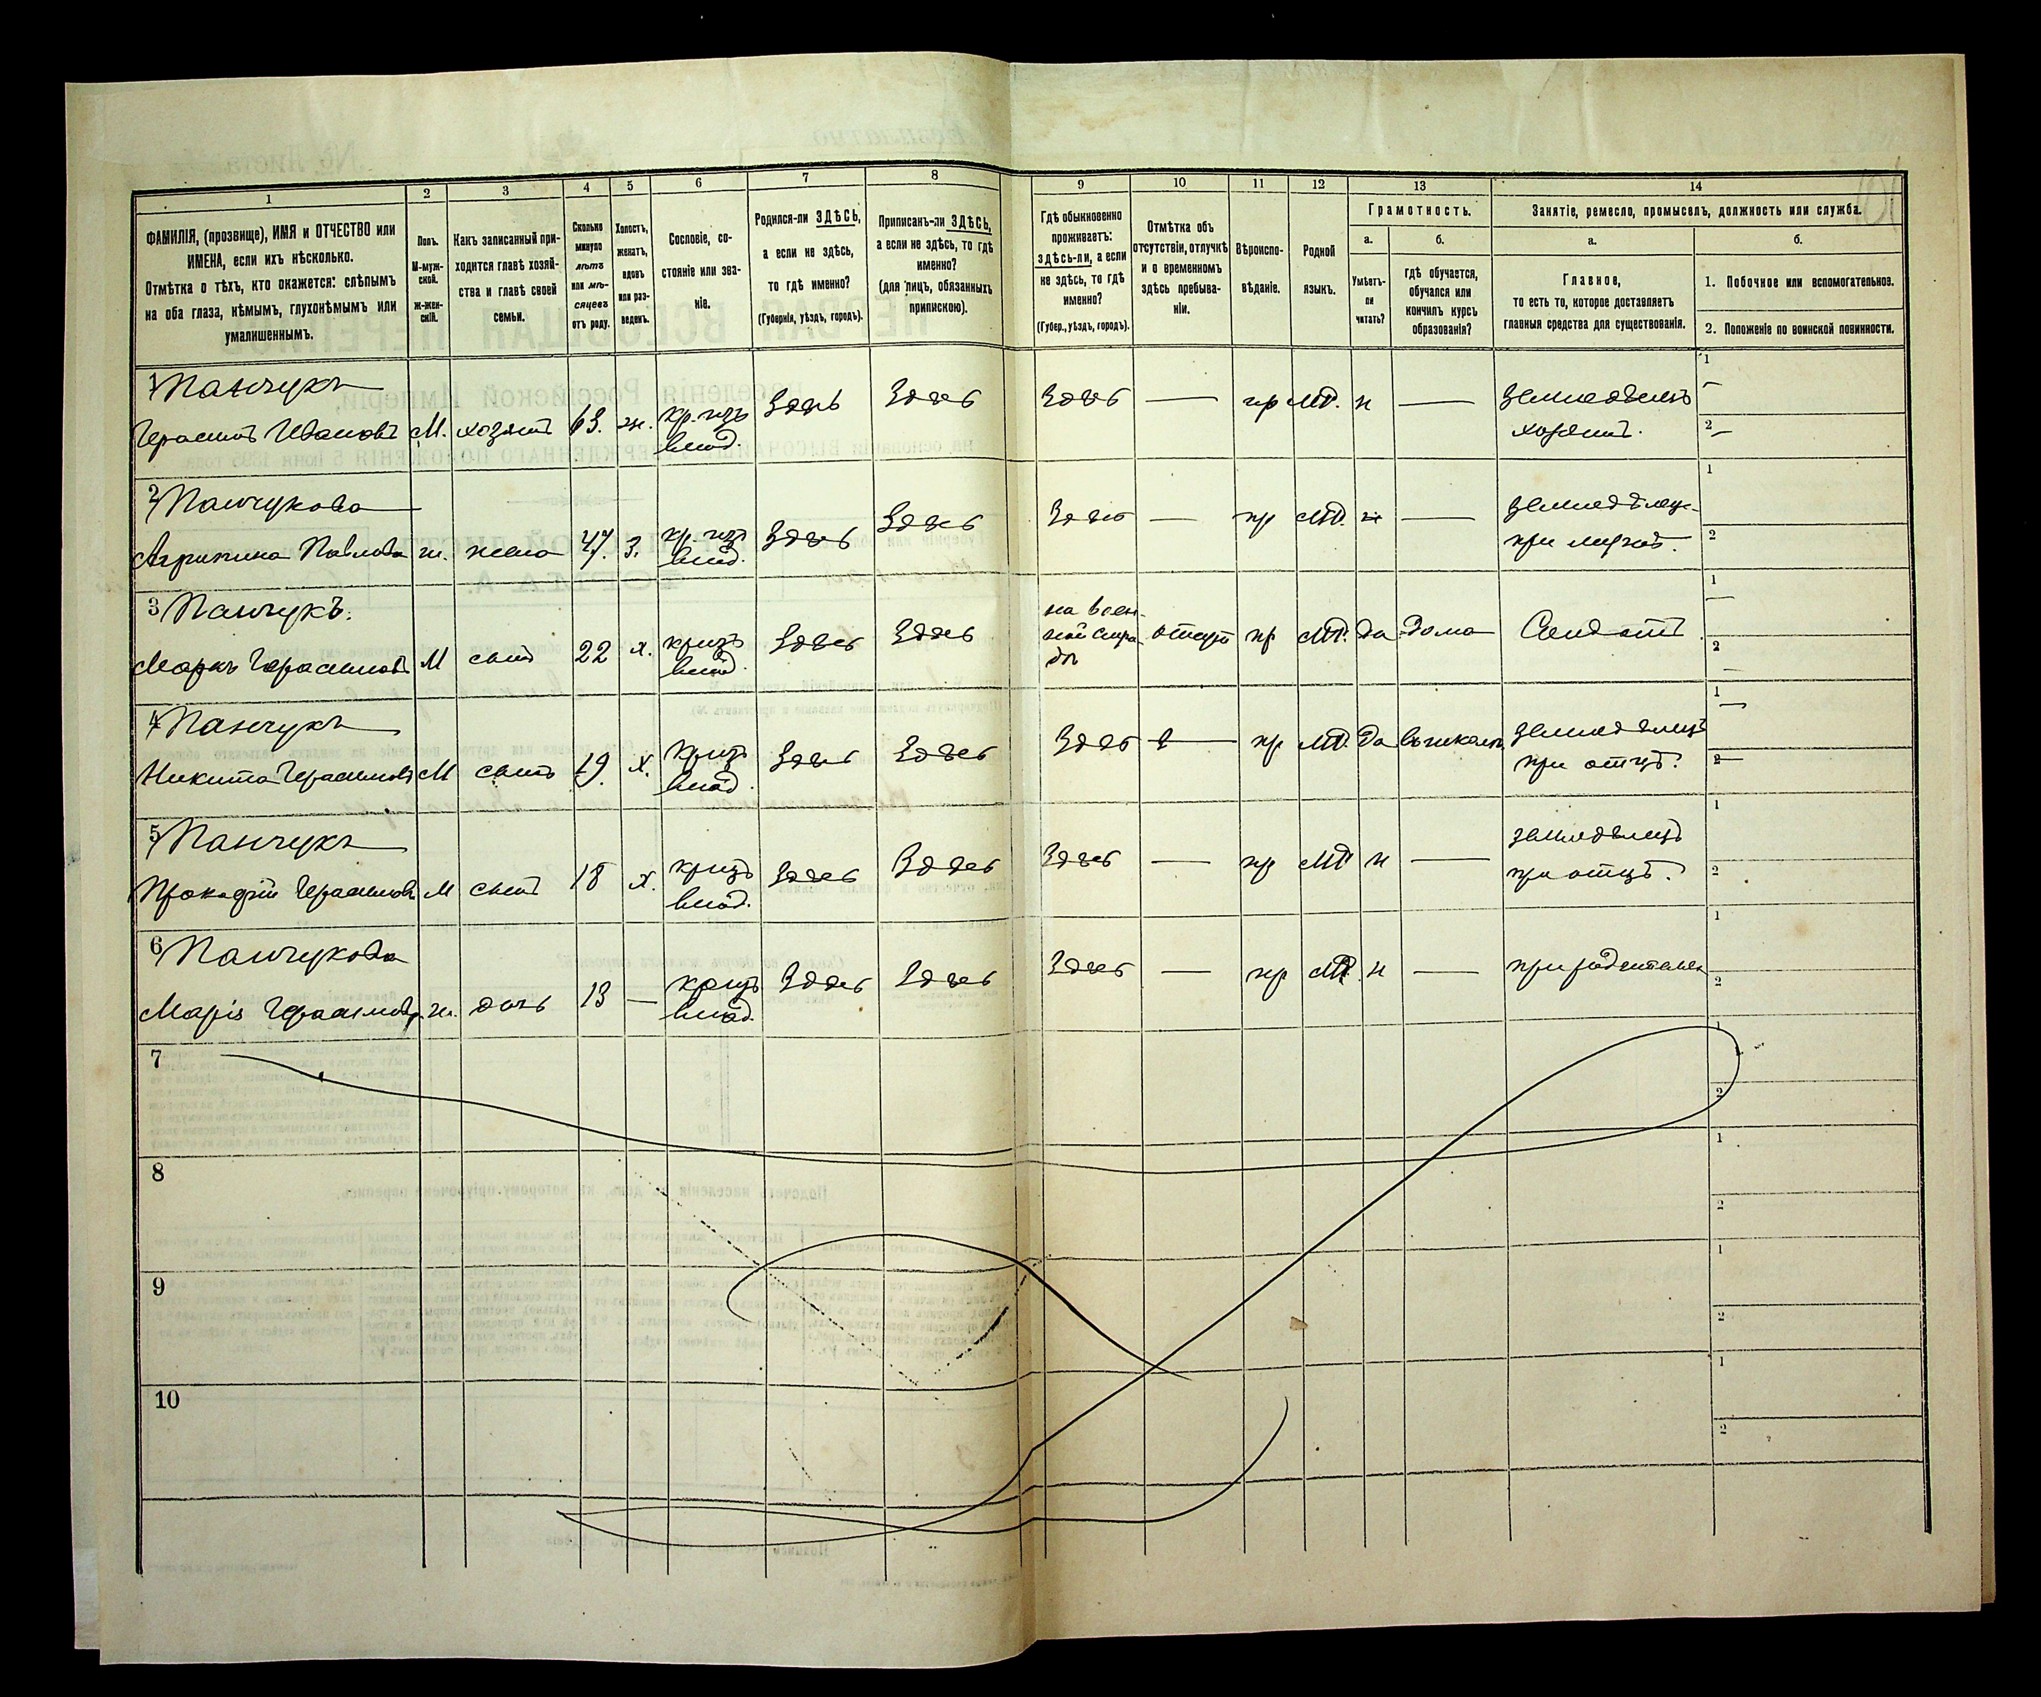 1 2 3 4 5 6 7 8 9 10 11 12 13 14
ФАМИЛІЯ, (прозвище), ИМЯ и ОТЧЕСТВО или
ИМЕНА, если ихъ нѣсколько.
Отмѣтка о тѣхъ, кто окажется: слѣпымъ
на оба глаза, нѣмымъ, глухонѣмымъ или
умалишеннымъ.
Полъ.
М-муж-
ской.
ж-жен-
скій.
Какъ записанный при-
ходится главѣ хозяй-
ства и главѣ своей
семьи.
Сколько
минуло
лѣтъ
или мѣ-
сяцевъ
отъ роду.
Холостъ,
женатъ,
вдовъ
или раз-
веденъ.
Сословіе, со-
стояніе или зва-
ніе.
Родился-ли ЗДѢСЬ,
а если не здѣсь,
то гдѣ именно?
(Губернія, уѣздъ, городъ).
Приписанъ-ли ЗДѢСЬ,
а если не здѣсь, то гдѣ
именно?
(для лицъ, обязанныхъ
припискою).
Гдѣ обыкновенно
проживаетъ:
здѣсь-ли, а если
не здѣсь, то гдѣ
именно?
(Губер., уѣздъ, городъ).
Отмѣтка объ
отсутствіи, отлучкѣ
и о временномъ
здѣсь пребыва-
ніи.
Вѣроиспо-
вѣданіе.
Родной
языкъ.
Грамотность.
а.
Умѣетъ-
ли
читать?
б.
гдѣ обучается,
обучался или
кончилъ курсъ
образованія?
Занятіе, ремесло, промыселъ, должность или служба.
а.
Главное,
то есть то, которое доставляетъ
главныя средства для существованія.
б.
1. Побочное или вспомогательное.
2. Положеніе по воинской повинности.
1 Панчукъ
Герасимъ Ивановъ М. хозяинъ 63. ж. кр. изъ влад. Здѣсь Здѣсь Здѣсь — пр МР. н — земледѣлецъ хозяинъ.
1 –
2 –
2 Панчукова
Агрипина Павлова ж. жена 47. З. кр. изъ влад. Здѣсь Здѣсь Здѣсь — пр МР. н —
при мужѣ.
1
2
3 Панчукъ.
Маркъ Герасимовъ М сынъ 22 х. кр изъ влад. Здѣсь Здѣсь на воен-
ной
отсут пр МР. да дома Солдатъ
1 —
2 —
4 Панчукъ
Никита Герасимовъ М сынъ 19. х. кр изъ влад. Здѣсь Здѣсь Здѣсь — пр МР. да въ школѣ земледѣлецъ
при отцѣ.
1 —
2 —
5 Панчукъ
Прокофій Герасимовъ М сынъ 18 х. кр изъ влад. Здѣсь Здѣсь Здѣсь — пр МР н — земледѣлецъ
при отцѣ.
1
2
6 Панчукова
Марія Герасимов. ж. дочь 13 — кр изъ влад. Здѣсь Здѣсь Здѣсь — пр МР. н — при родителяхъ
1
2
7
1
2
8
1
2
9
1
2
10
1
2